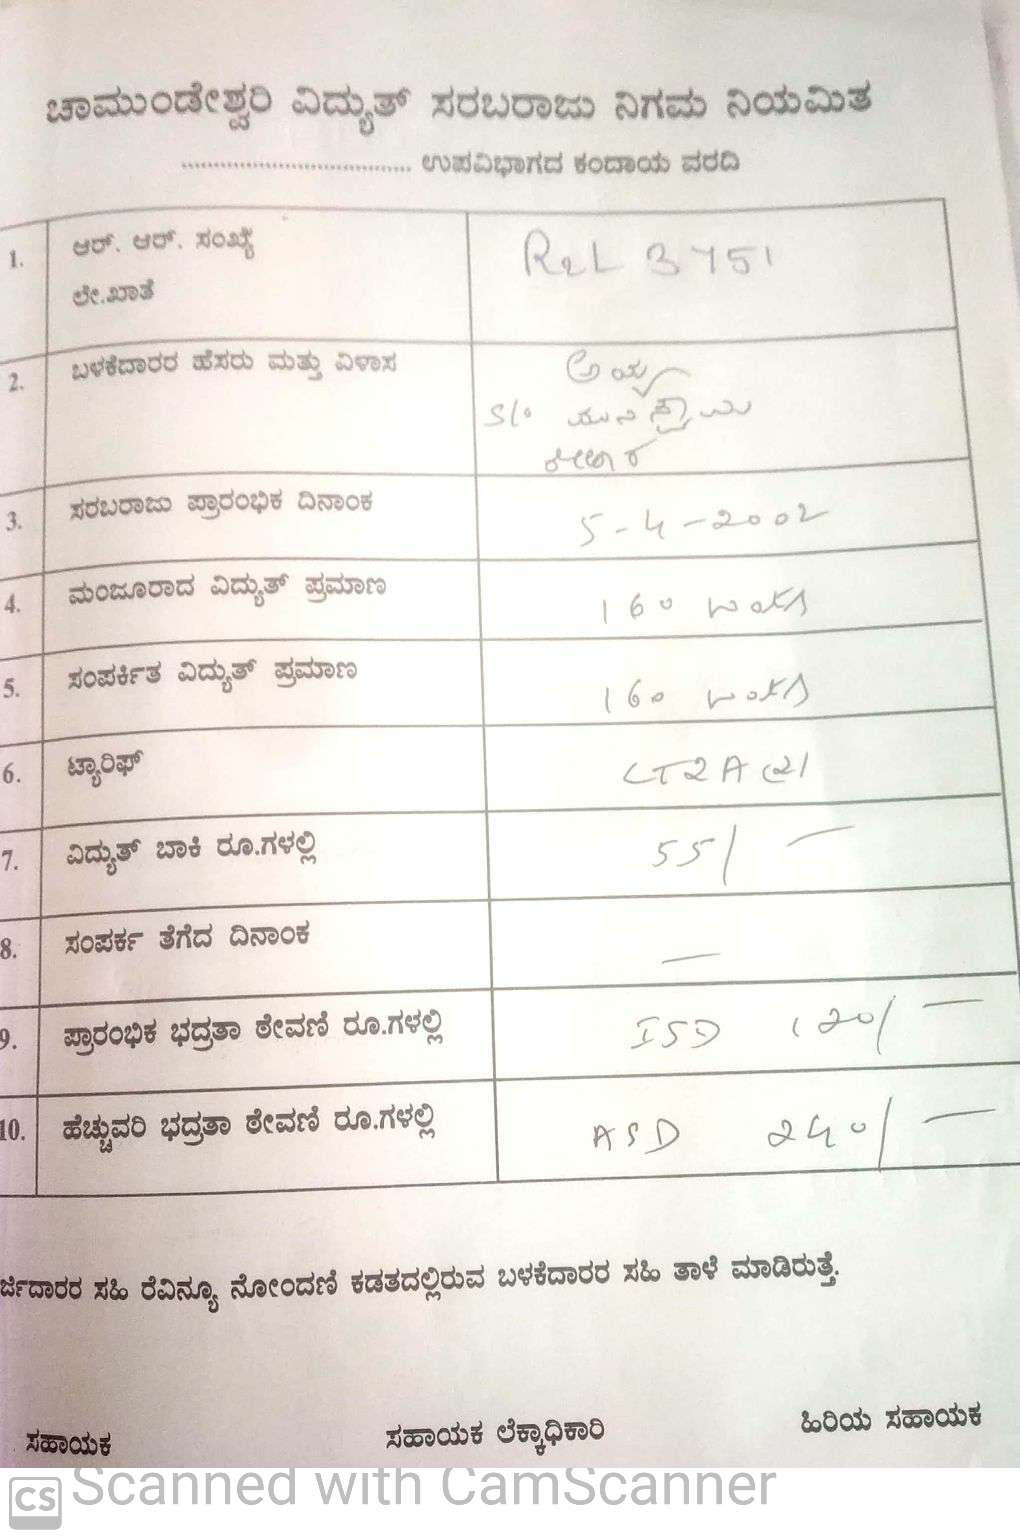 ಚಾಮುಂಡೇಶ್ವರಿ ವಿದ್ಯುತ್ ಸರಬರಾಜು ನಿಗಮ ನಿಯಮಿತ
.................................... ಉಪವಿಭಾಗದ ಕಂದಾಯ ವರದಿ
1. ಆರ್. ಆರ್. ಸಂಖ್ಯೆ
ಲೇ.ಖಾತೆ
2. ಬಳಕೆದಾರರ ಹೆಸರು ಮತ್ತು ವಿಳಾಸ
S/o ಮುನಿಸ್ವಾಮಿ
3. ಸರಬರಾಜು ಪ್ರಾರಂಭಿಕ ದಿನಾಂಕ 5-4-2002
4. ಮಂಜೂರಾದ ವಿದ್ಯುತ್ ಪ್ರಮಾಣ 160
5. ಸಂಪರ್ಕಿತ ವಿದ್ಯುತ್ ಪ್ರಮಾಣ 160
6. ಟ್ಯಾರಿಫ್
7. ವಿದ್ಯುತ್ ಬಾಕಿ ರೂ.ಗಳಲ್ಲಿ 55/—
8. ಸಂಪರ್ಕ ತೆಗೆದ ದಿನಾಂಕ —
9. ಪ್ರಾರಂಭಿಕ ಭದ್ರತಾ ಠೇವಣಿ ರೂ.ಗಳಲ್ಲಿ ISD 120/—
10. ಹೆಚ್ಚುವರಿ ಭದ್ರತಾ ಠೇವಣಿ ರೂ.ಗಳಲ್ಲಿ ASD 240/—
ರ್ಜಿದಾರರ ಸಹಿ ರೆವಿನ್ಯೂ ನೋಂದಣಿ ಕಡತದಲ್ಲಿರುವ ಬಳಕೆದಾರರ ಸಹಿ ತಾಳೆ ಮಾಡಿರುತ್ತೆ.
ಸಹಾಯಕ ಸಹಾಯಕ ಲೆಕ್ಕಾಧಿಕಾರಿ ಹಿರಿಯ ಸಹಾಯಕ
CS Scanned with CamScanner